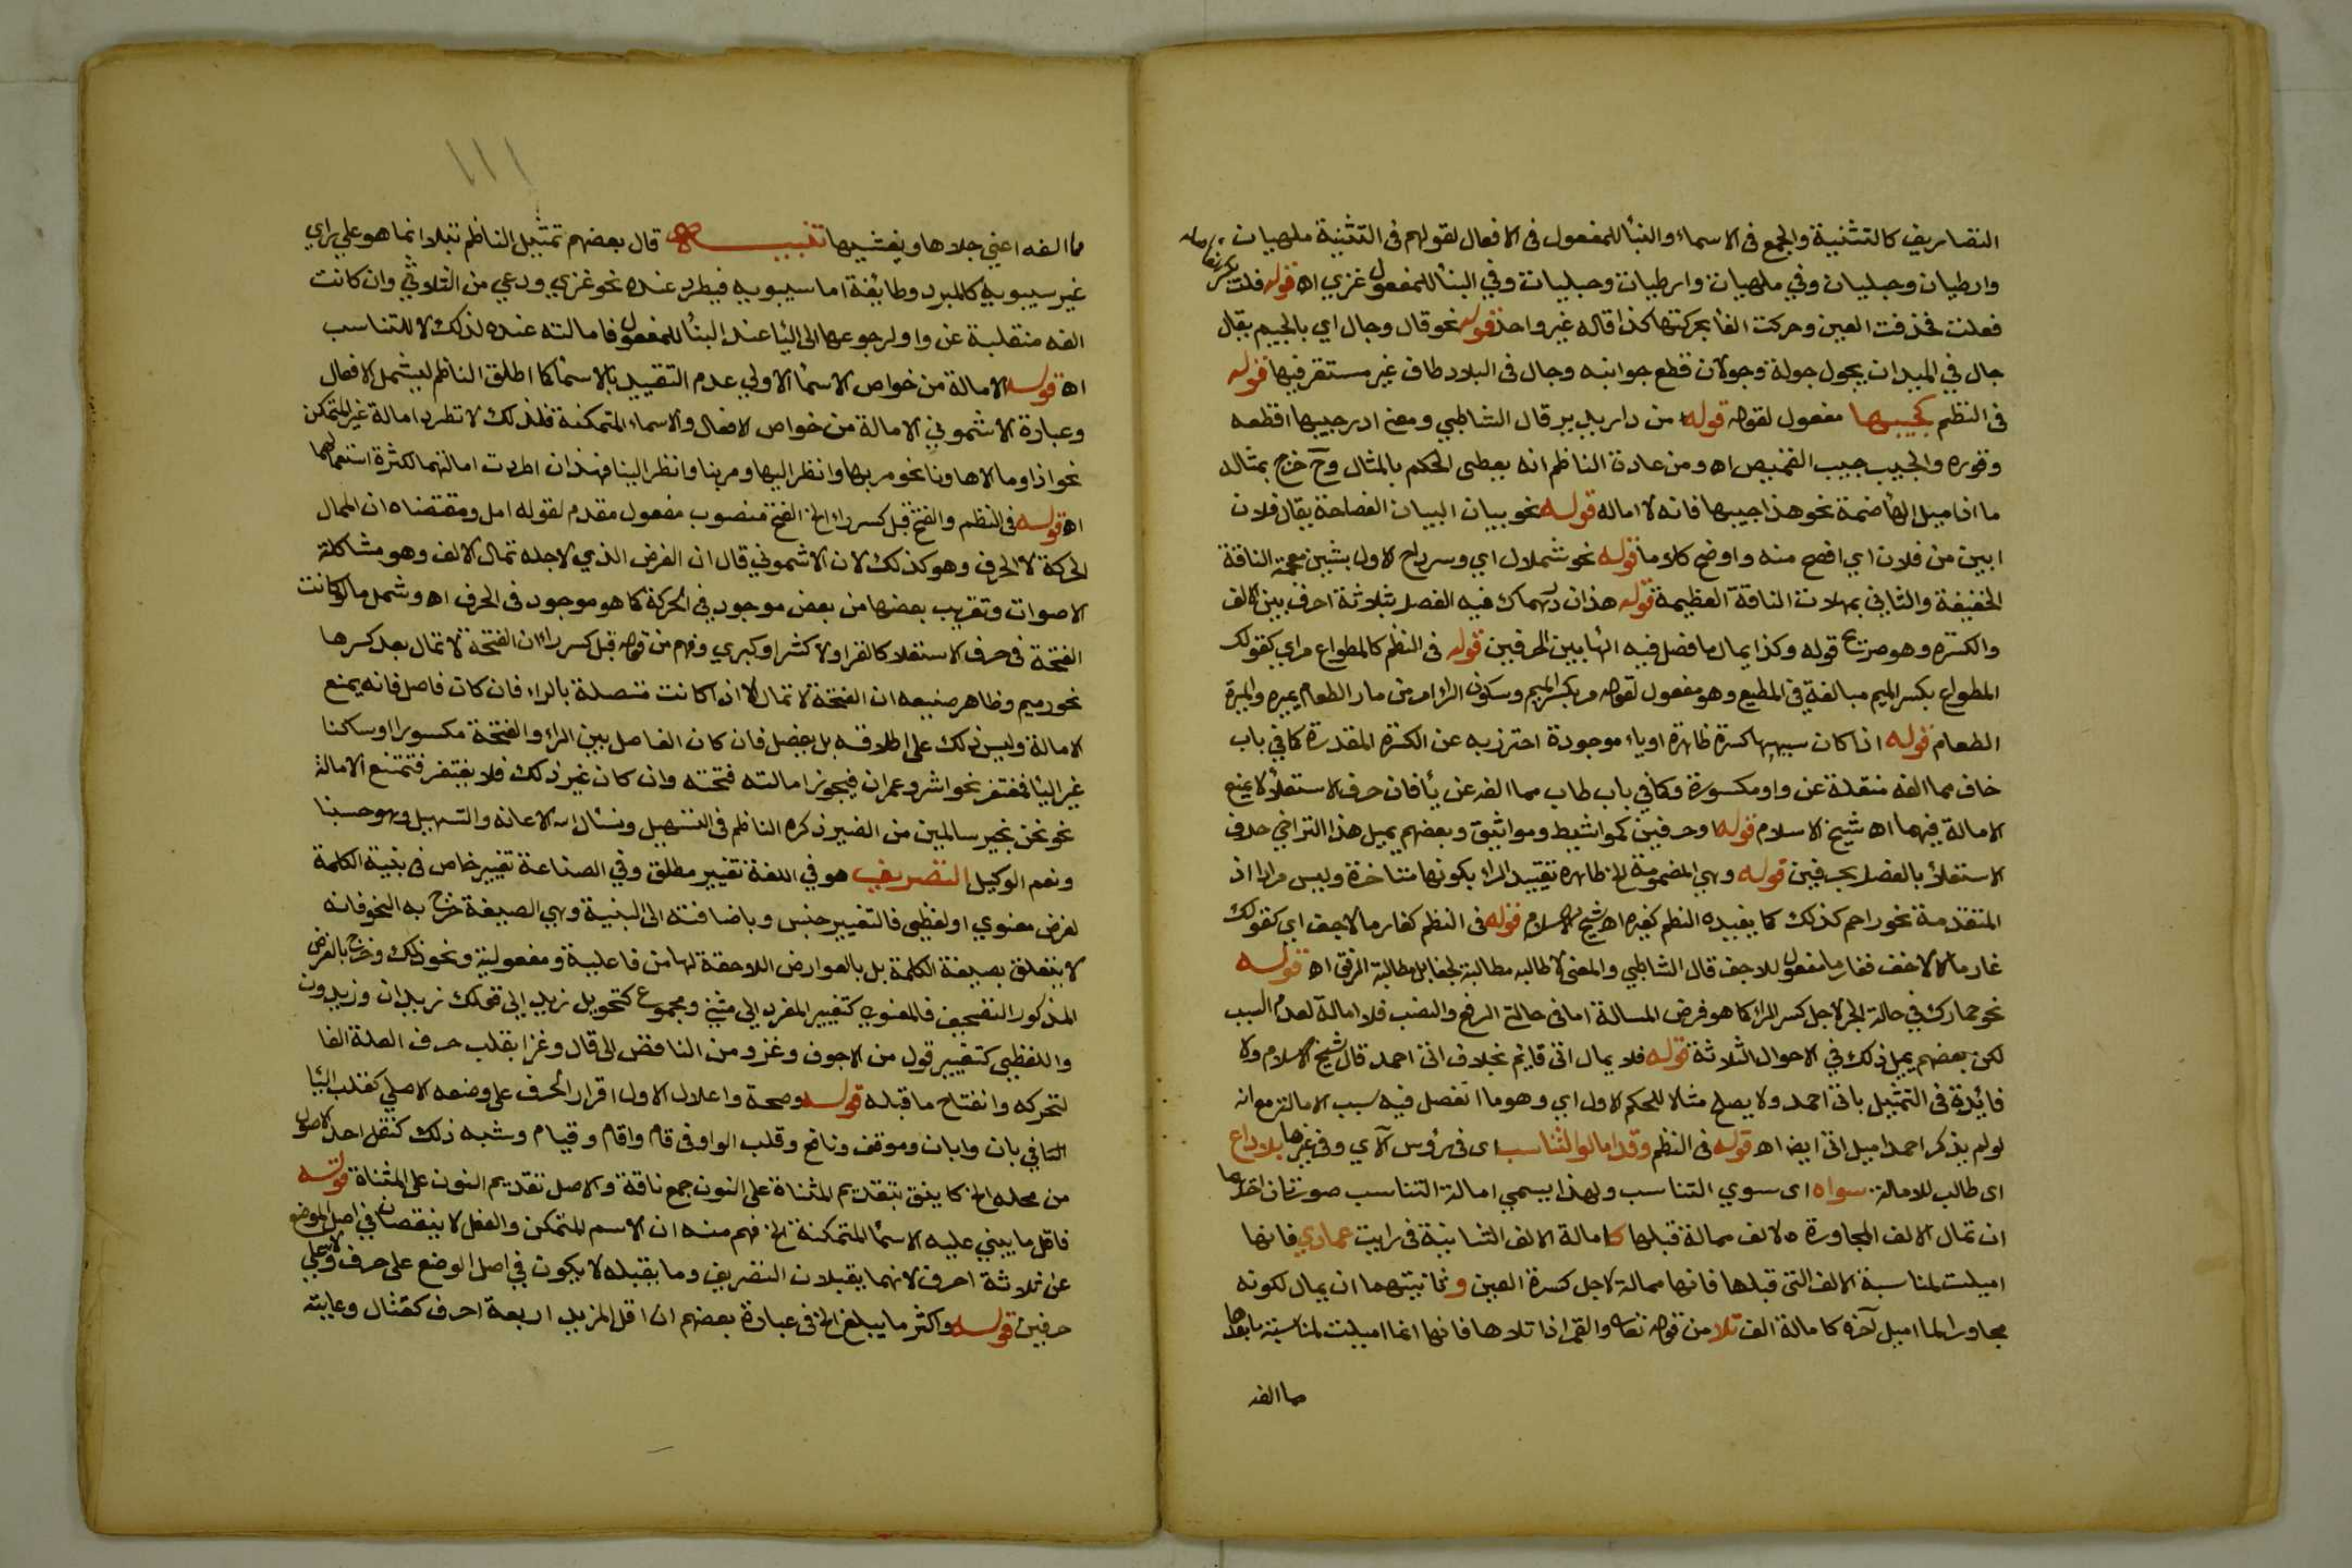 التصاريف كالتثنية والجمع في الاسماء والبنأ للمفعول في الافعال لقولهم في التثنية ملهيان
وارطيان وحبليان وفي ملهيات وارطيات وحبليات وفي البنأ للمفعول غزي اه قوله فلت
فعلت فحذفت العين وحركت الفا بحركتها كذا قاله غير واحد قوله نحو قال وجال اي بالجيم يقال
جال في الميدان يجول جولة وجولان قطع جوانبه وجال في البلاد طاف غير مستقر فيها قوله
في النظم كجيبها مفعول لقوله قوله من دار يدير قال الشاطبي ومعنى ادر جيبها اقطعه
وقوره والجيب جيب القميص اه ومن عادة الناظم انه يعطى الحكم بالمثال وح خرج بمثاله
ما اذا ميل الها ضمة نحو هذا جيبها فانه لا امالة قوله نحو بيان البيان الفصاحة يقال فلان
ابين من فلان اي افصح منه واوضح كلاما قوله نحو شملال اي وسرداح الاول بشين معجمة الناقة
الخفيفة والثاني بمهلات الناقة العظيمة قوله هذان درهماك فيه الفصل بثلاثة احرف بين الالف
والكسرة وهو قوله وكذا يمال ما فصل فيه الها بين الحرفين قوله في النظم كالمطواع مراي كقولك
المطواع بكسر الميم مبالغة في المطيع وهو مفعول لقوله مر بكسر الميم وسكون الرا امر من مار الطعام يميره والميرة
الطعام قوله اذا كان سببها كسرة ظاهرة او ياء موجودة احترز به عن الكسرة المقدرة كما في باب
خاف مما الفه منقلبة عن واو مكسورة وكما في باب طاب مما الفه عن يأ فان حرف الاستعلأ لا يمنع
الامالة فيهما اه شيخ الاسلام قوله او حرفين كمواشيط ومواثيق وبعضهم يميل هذا التراخي حرف
الاستعلأ بالفصل بحرفين قوله وهي المضمومة الخ ظاهره تقييد الرا بكونها متاخرة وليس مرادا اذ
المتقدمة نحو راحم كذلك كما يفيده النظم كغيره اه شيخ الاسلام قوله في النظم كغارما لا اجفو اي كقولك
غارما لا اخفف فغارما مفعول للاجف قال الشاطبي والمعنى لا طالبه مطالبة الجفا بل مطالبة الرفق اه قوله
نحو حمارك في حالة الجر لاجل كسر الرا كما هو فرض المسالة اما في حالتي الرفع والنصب فلا امالة لعدم السبب
لكن بعضهم يميل ذلك في الاحوال الثلاثة قوله فلا يمال اتى قاسم بخلاف اتى احمد قال شيخ الاسلام ولا
فائدة في التمثيل باتى احمد ولا يصلح مثالا للحكم الاول اي وهو ما انفصل فيه سبب الامالة مع انه
لو لم يذكر احمد اميل اتى ايضا اه قوله في النظم وقد امالوا لتناسب اى في رؤس الآي وفي غيرها بلا داع
اى طالب للامالة سواه اى سوي التناسب ولهذا يسمى امالة التناسب صورتان احدهما
ان تمال الالف المجاورة لالف ممالة قبلها كامالة الالف الثانية في رايت عمادي فانها
اميلت لمناسبة الالف التي قبلها فانها ممالة لاجل كسرة العين وثانيتهما ان يمال لكونه
مجاورا لما اميل آخره كامالة الف تلا من قوله تعالى والقمر اذا تلاها فانها انما اميلت لمناسبة ما بعدها
مما الفه
١١١
مما الفه اعني جلاها ويغشيها تنبيـــه قال بعضهم تمثيل الناظم بتلا انما هو على راي
غير سيبويه كالمبرد وطائفة اما سيبويه فيطرد عنده نحو غزي ودعي من الثلاثي وان كانت
الفه منقلبة عن واو لرجوعها الى اليأ عند البنأ للمفعول فامالته عنده لذلك لا للتناسب
اه قوله الامالة من خواص الاسمأ الاولى عدم التقييد بالاسمأ كما اطلق الناظم ليشمل الافعال
وعبارة الاشموني الامالة من خواص الافعال والاسماء المتمكنة فلذلك لا تطرد امالة غير المتمكن
نحو اذا وما الا ها ونا نحو مر بها وانظر اليها ومر بنا وانظر الينا فهذان اطردت امالتهما لكثرة استعمالهما
اه قوله في النظم والفتح قبل كسر راء الخ الفتح منصوب مفعول مقدم لقوله امل ومقتضاه ان الممال
الحركة لا الحرف وهو كذلك لان الاشموني قال ان الغرض الذي لاجله تمال الالف وهو مشاكلة
الاصوات وتقريب بعضها من بعض موجود في الحركة كما هو موجود في الحرف اه وشمل ما لو كانت
الفتحة في حرف الاستعلا كالقر او لا كشرر وكبري وفهم من قوله قبل كسر راء ان الفتحة لا تمال بعد كسرها
نحو رميم وظاهر صنيعه ان الفتحة لا تمال الا اذا كانت متصلة بالراء فان كان فاصل فانه يمنع
الامالة وليس ذلك على اطلاقه بل يفصل فان كان الفاصل بين الراء والفتحة مكسورا او ساكنا
غير اليأ فمغتفر نحو اشر وعمران فيجوز امالته فتحته وان كان غير ذلك فلا يغتفر فتمتنع الامالة
نحو نحن بخير سالمين من الضير ذكره الناظم في التسهيل ونسأل الله الاعانة والتسهيل وهو حسبنا
ونعم الوكيل التصريف هو في اللغة تغيير مطلق وفي الصناعة تغيير خاص في بنية الكلمة
لغرض معنوي او لفظي فالتغيير جنس وباضافته الى البنية وهي الصيغة خرج به النحو فانه
لا يتعلق بصيغة الكلمة بل بالعوارض اللاحقة لها من فاعلية ومفعولية ونحو ذلك وخرج بالغرض
المذكور التصحيف فالمعنوي كتغيير المفرد الى مثنى ومجموع كتحويل زيد الى قولك زيدان وزيدون
واللفظي كتغيير قول من الاجوف وغزو من الناقص الى قال وغزا بقلب حرف العلة الفا
لتحركه وانفتاح ما قبله قوله وصحة واعلال الاول اقرار الحرف على وضعه الاصلي كقلب اليأ
الثاني بان وابان وموقف ونافخ وقلب الواو في قام واقام وقيام وشبه ذلك كنقل احد الاصول
من محله الخ كاينق بتقديم المثناة على النون جمع ناقة والاصل تقديم النون على المثناة قوله
فاقل ما يبنى عليه الاسمأ المتمكنة الخ فهم منه ان الاسم المتمكن والفعل لا ينقصان في اصل الوضع
عن ثلاثة احرف لانهما يقبلان التصريف وما يقبله لا يكون في اصل الوضع على حرف ولا على
حرفين قوله واكثر ما يبلغ الخ في عبارة بعضهم ان اقل المزيد اربعة احرف كقتال وغايته